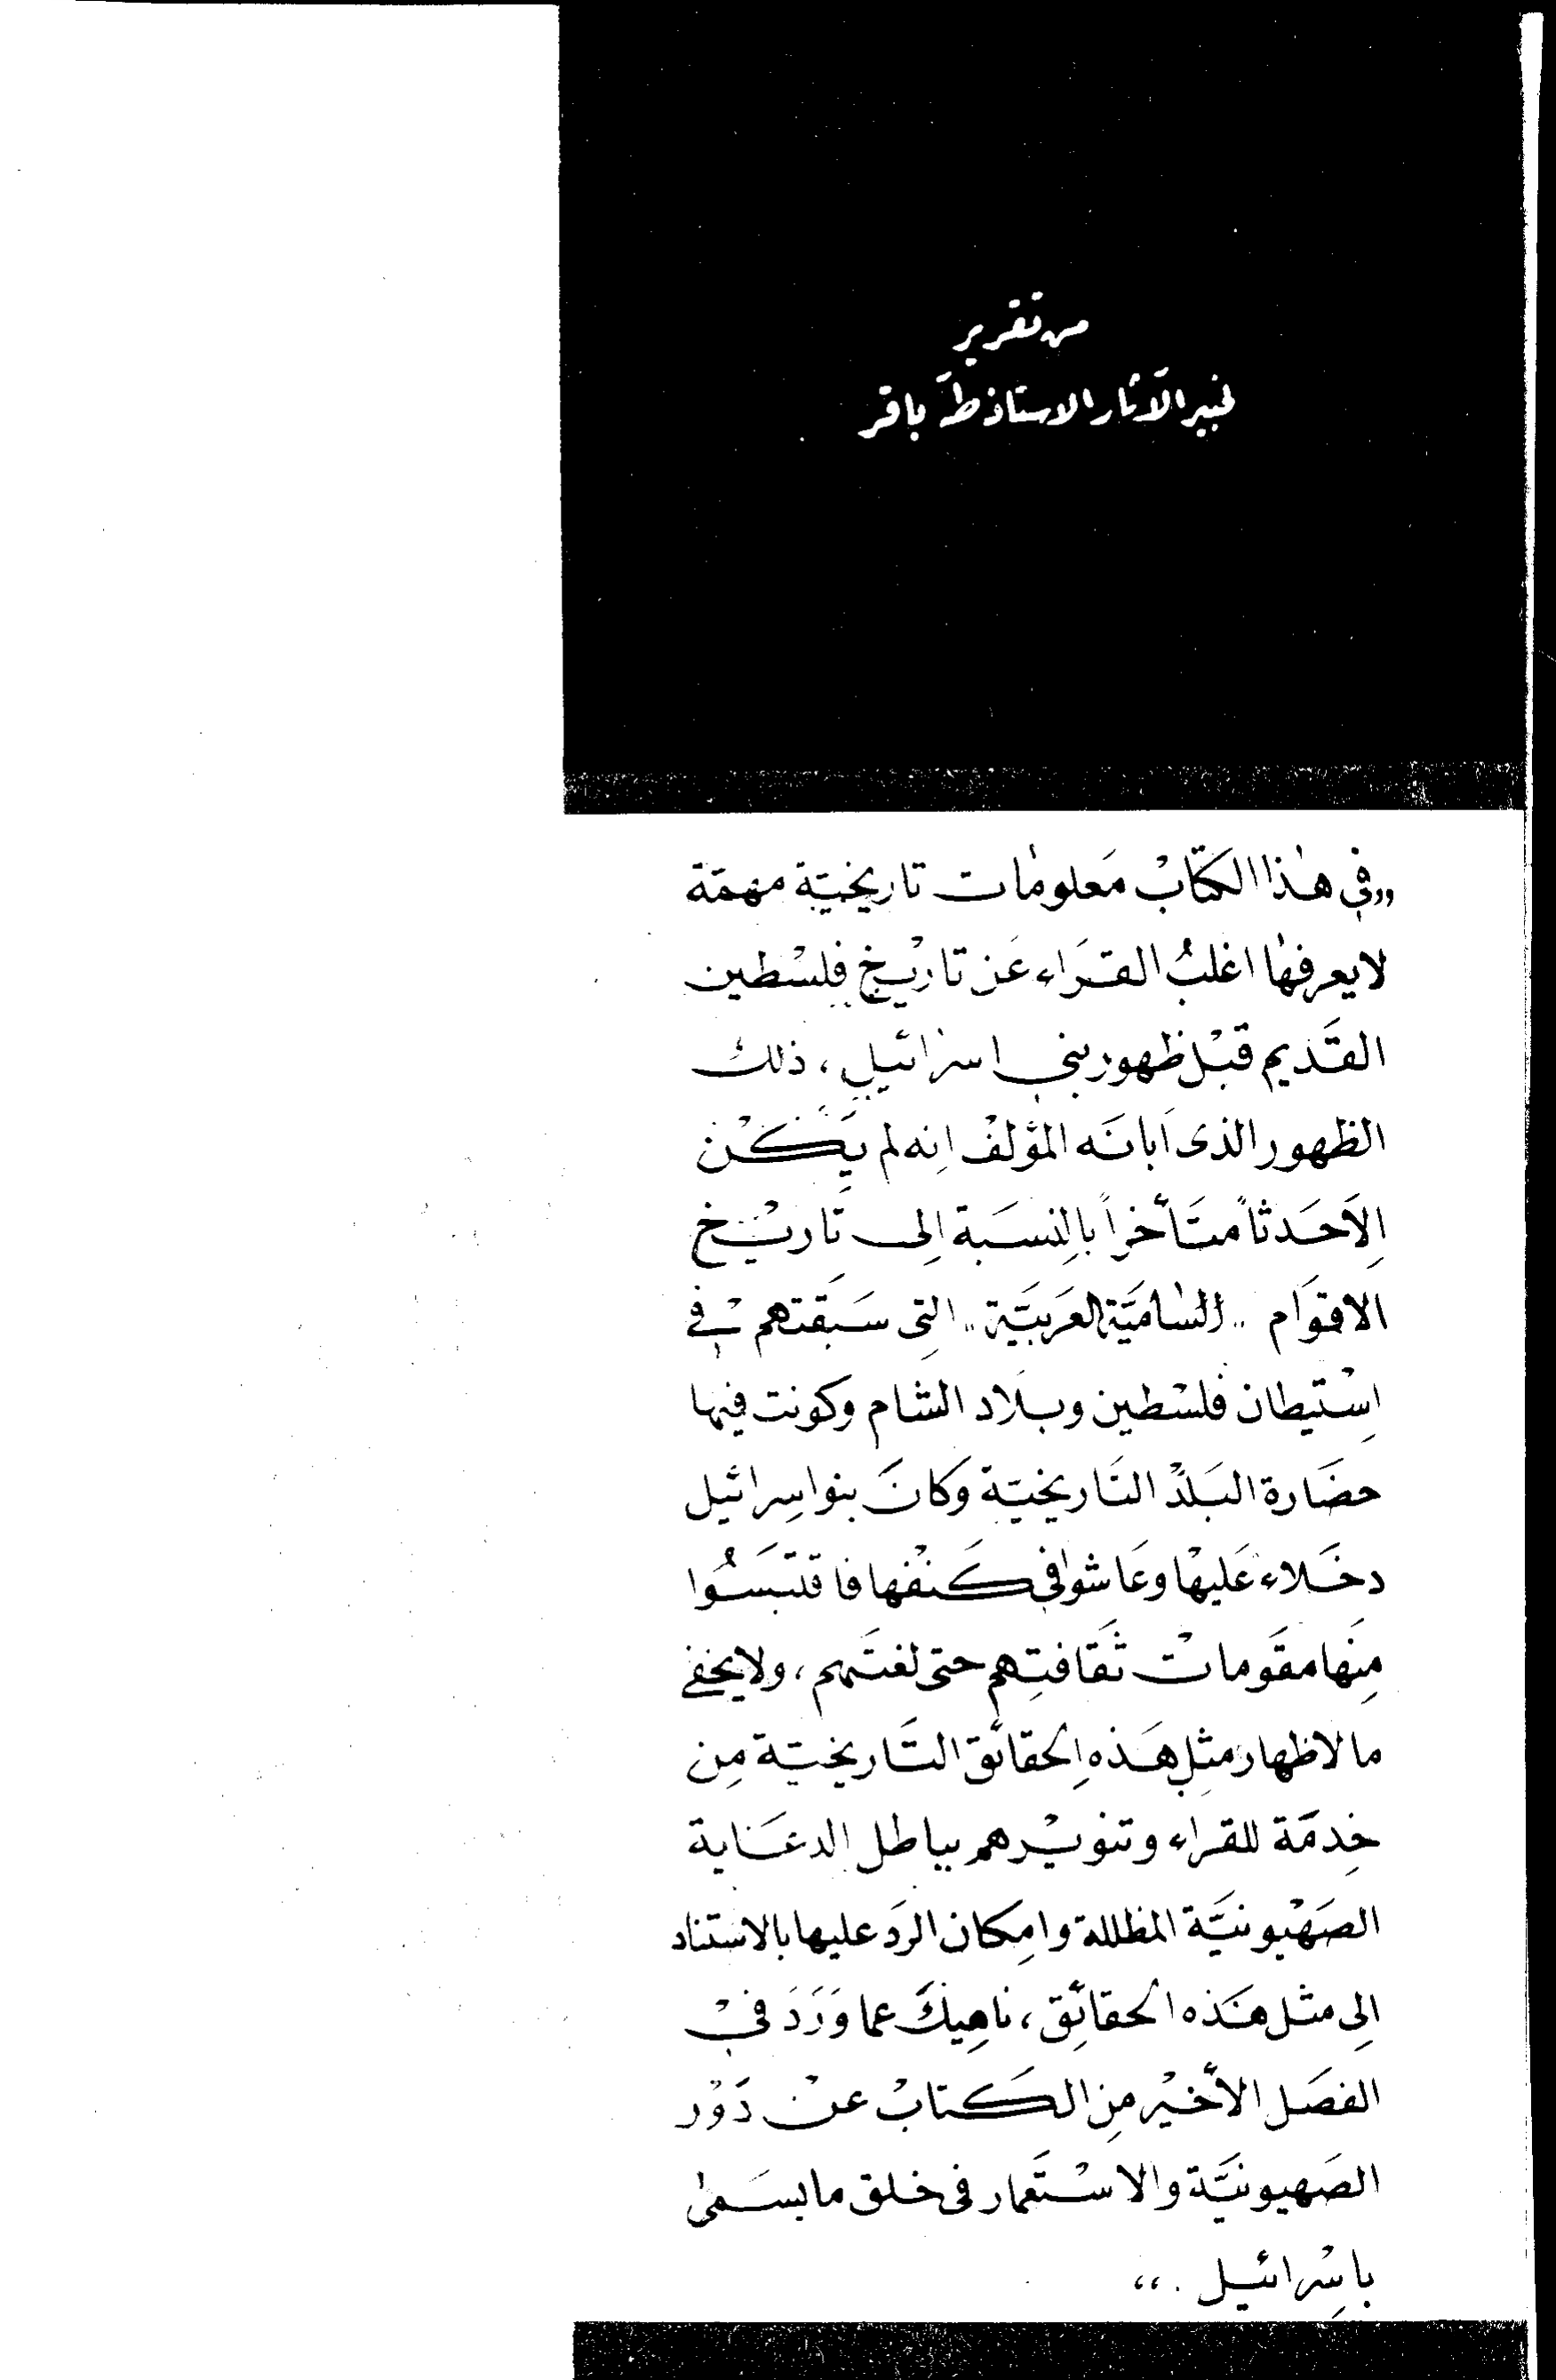 من تقرير
خبير الآثار الاستاذ طه باقر
„في هذا الكتاب معلومات تاريخيّة مهمّة
لا يعرفها اغلبُ القرّاء عن تاريخ فلسطين
القديم قبل ظهور بني اسرائيل، ذلك
الظهور الذي أبانه المؤلف انه لم يكن
إلا حدثاً متأخراً بالنسبة الى تاريخ
الاقوام „السّاميّة العربيّة„ التي سبقتهم في
إستيطان فلسطين وبلاد الشام وكونت فيها
حضارة البلد التاريخيّة وكان بنو اسرائيل
دخلاء عليها وعاشوا في كنفها فاقتبسُوا
مِنها مقومات ثقافتهم حتى لغتهم، ولا يخفى
ما لاظهار مثل هذه الحقائق التاريخيّة مِن
خِدمة للقراء وتنويرهم بباطل الدعاية
الصهيونيّة المظللة وامكان الردّ عليها بالاستناد
الى مثل هذه الحقائق، ناهيك عما وَرَدَ في
الفصل الأخير من الكتاب عن دَوْر
الصهيونيّة والاستعمار في خلق ما يسمى
باسْرائيل .“